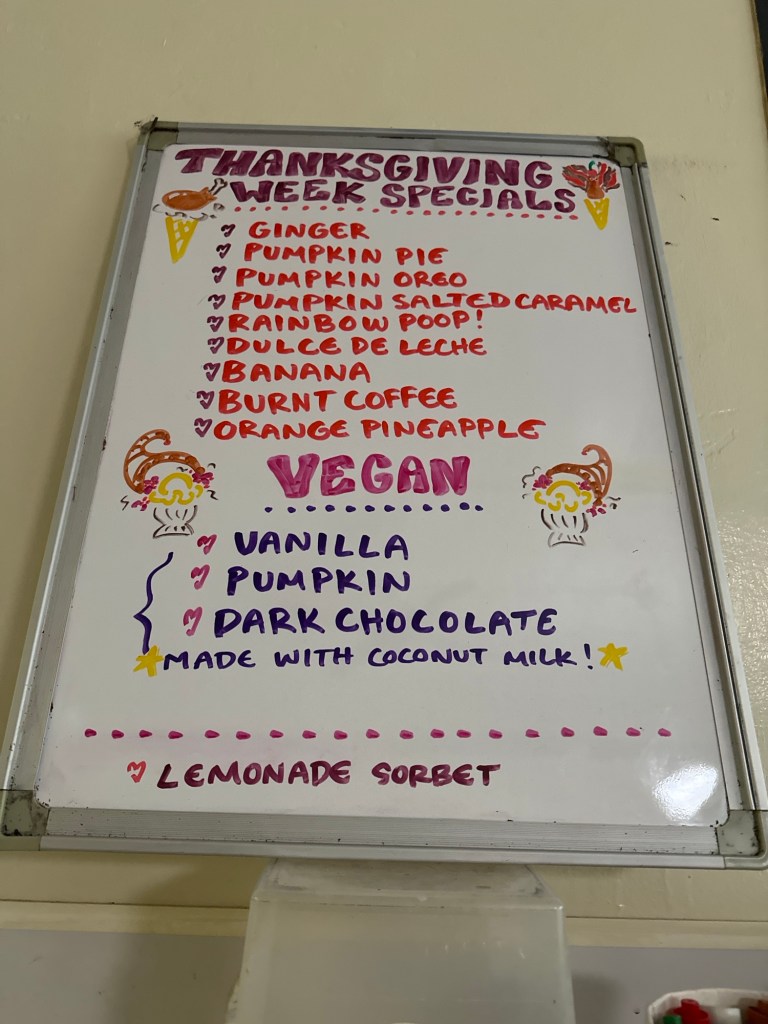 THANKSGIVING
WEEK SPECIALS
GINGER
PUMPKIN PIE
PUMPKIN OREO
PUMPKIN SALTED CARAMEL
RAINBOW POOP!
DULCE DE LECHE
BANANA
BURNT COFFEE
ORANGE PINEAPPLE
VEGAN
VANILLA
PUMPKIN
DARK CHOCOLATE
MADE WITH COCONUT MILK!
LEMONADE SORBET